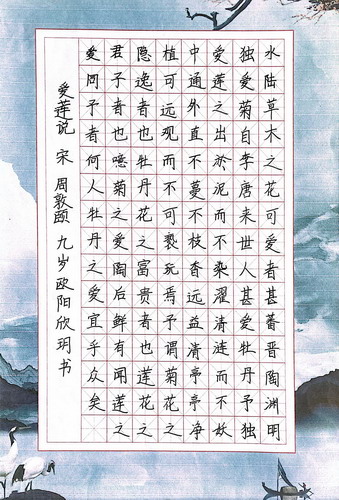 水陆草木之花可爱者甚蕃晋陶渊明
独爱菊自李唐来世人甚爱牡丹予独
爱莲之出於泥而不染濯清涟而不妖
中通外直不蔓不枝香远益清亭亭净
植可远观而不可亵玩焉予谓菊花之
隐逸者也牡丹花之富贵者也莲花之
君子者也噫菊之爱陶后鲜有闻莲之
爱同予者何人牡丹之爱宜乎众矣
爱莲说 宋 周敦颐 九岁欧阳欣玥书